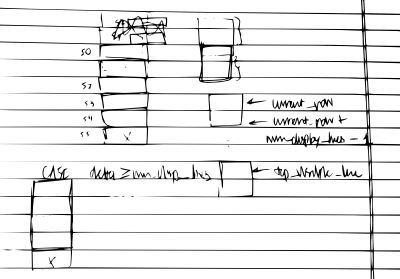 50
52
53 ← current_row
54 ← current_row +
55 X num_display_lines - 1
CASE delta ≥ num_disp_lines ← top_visible_line
X